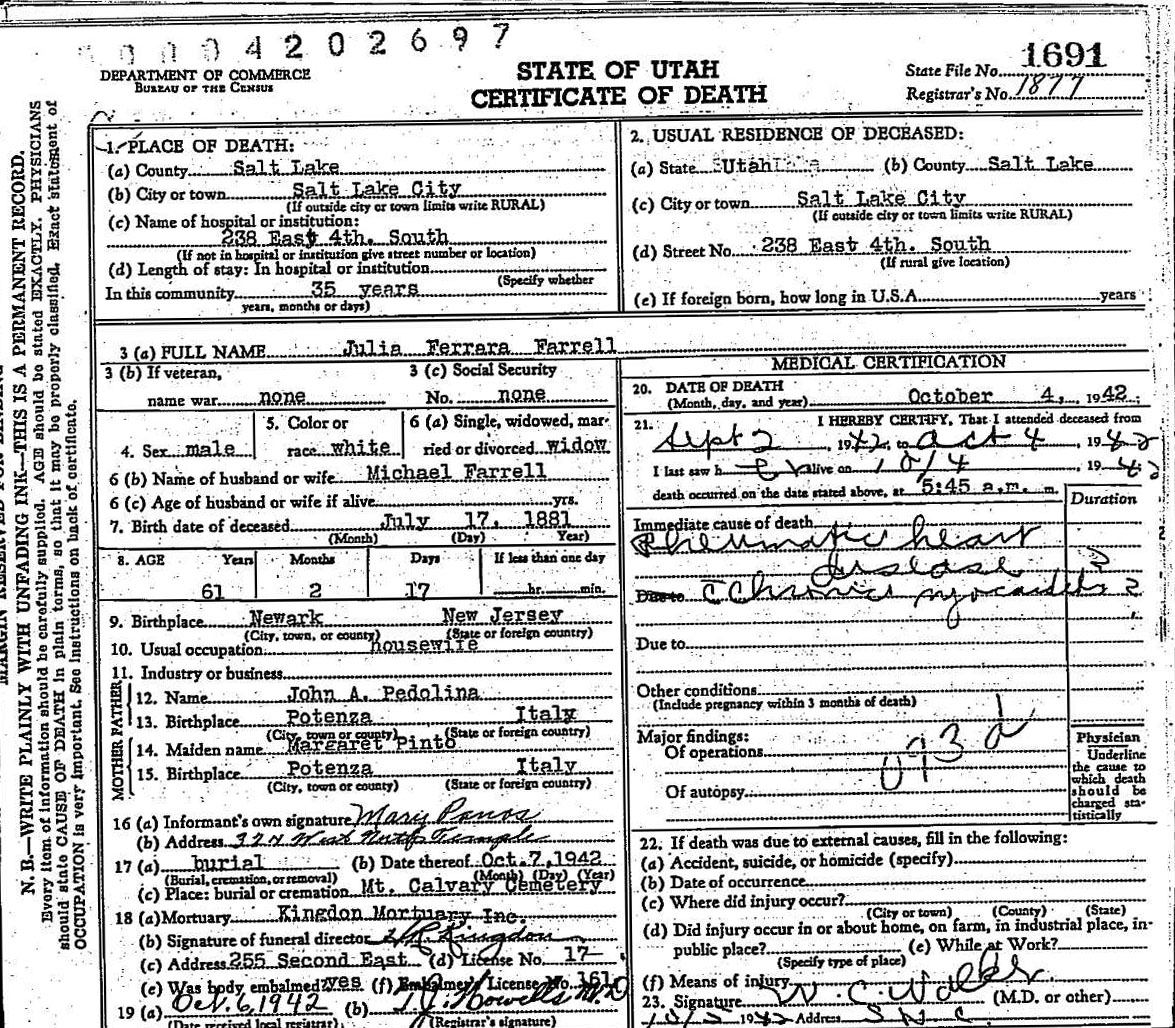 0004202697
DEPARTMENT OF COMMERCE
BUREAU OF THE CENSUS
STATE OF UTAH
CERTIFICATE OF DEATH
State File No. 1691
Registrar's No. 1877
N. B.—WRITE PLAINLY WITH UNFADING INK—THIS IS A PERMANENT RECORD.
Every item of information should be carefully supplied. AGE should be stated EXACTLY. PHYSICIANS
should state CAUSE OF DEATH in plain terms, so that it may be properly classified. Exact statement of
OCCUPATION is very important. See instructions on back of certificate.
1. PLACE OF DEATH:
(a) County Salt Lake
(b) City or town Salt Lake City
(If outside city or town limits write RURAL)
(c) Name of hospital or institution:
238 East 4th. South
(If not in hospital or institution give street number or location)
(d) Length of stay: In hospital or institution
(Specify whether
In this community 35 years
years, months or days)
2. USUAL RESIDENCE OF DECEASED:
(a) State Utah (b) County Salt Lake
(c) City or town Salt Lake City
(If outside city or town limits write RURAL)
(d) Street No. 238 East 4th. South
(If rural give location)
(e) If foreign born, how long in U.S.A. years
3 (a) FULL NAME Julia Ferrara Farrell
3 (b) If veteran, 3 (c) Social Security
name war none No. none
5. Color or 6 (a) Single, widowed, mar-
4. Sex male race white ried or divorced widow
6 (b) Name of husband or wife Michael Farrell
6 (c) Age of husband or wife if alive yrs.
7. Birth date of deceased July 17, 1881
(Month) (Day) Year)
8. AGE Years Months Days If less than one day
61 2 17 hr. min.
9. Birthplace Newark New Jersey
(City, town, or county) (State or foreign country)
10. Usual occupation housewife
11. Industry or business
FATHER
12. Name John A. Pedolina
13. Birthplace Potenza Italy
(City, town or county) (State or foreign country)
MOTHER
14. Maiden name Margaret Pinto
15. Birthplace Potenza Italy
(City, town or county) (State or foreign country)
16 (a) Informant's own signature Mary Panos
(b) Address 324 West North Temple
17 (a) burial (b) Date thereof Oct. 7, 1942
(Burial, cremation, or removal) (Month) (Day) (Year)
(c) Place: burial or cremation Mt. Calvary Cemetery
18 (a) Mortuary Kingdon Mortuary Inc.
(b) Signature of funeral director Kingdon
(c) Address 255 Second East (d) License No. 17
(e) Was body embalmed? yes (f) Embalmer License No. 161
19 (a) Oct. 6, 1942 (b) T. J. Howells M.D
(Date received local registrar) (Registrar's signature)
MEDICAL CERTIFICATION
20. DATE OF DEATH
(Month, day, and year) October 4, 1942
21. I HEREBY CERTIFY, That I attended deceased from
Sept 2, 1942, to Oct 4, 1942
I last saw h er alive on 10/4, 1942
death occurred on the date stated above, at 5:45 a.m. m.
Duration
Immediate cause of death
Rheumatic heart
disease ?
Due to Chronic
Due to
Other conditions
(Include pregnancy within 3 months of death)
Major findings:
Of operations
093d
Of autopsy
Physician
Underline
the cause to
which death
should be
charged sta-
tistically
22. If death was due to external causes, fill in the following:
(a) Accident, suicide, or homicide (specify)
(b) Date of occurrence
(c) Where did injury occur?
(City or town) (County) (State)
(d) Did injury occur in or about home, on farm, in industrial place, in-
public place? (e) While at Work?
(Specify type of place)
(f) Means of injury
23. Signature W. C. Walker (M.D. or other)
1942 Address S L C